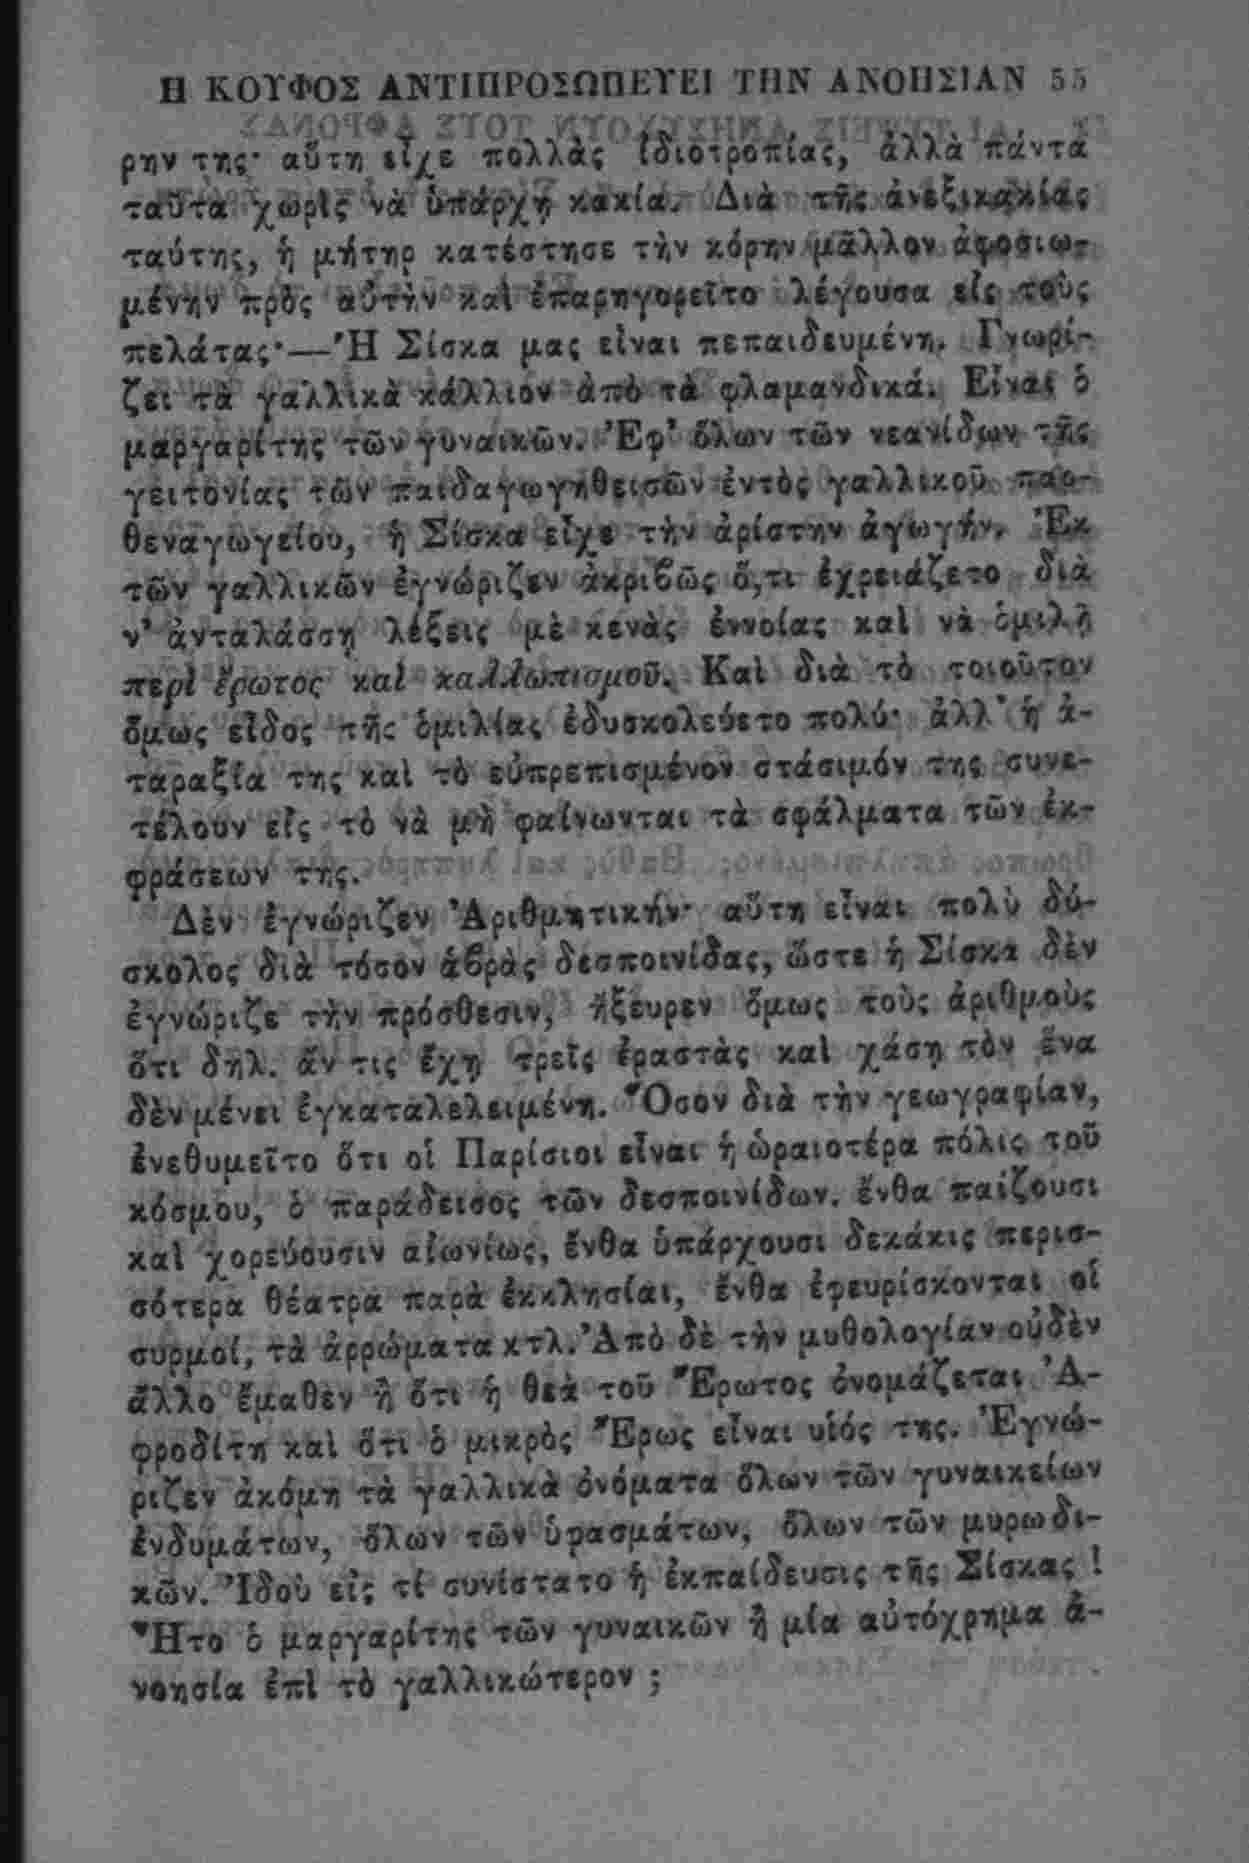 Η ΚΟΥΦΟΣ ΑΝΤΙΠΡΟΣΩΠΕΥΕΙ ΤΗΝ ΑΝΟΗΣΙΑΝ 55
ρην της· αὕτη εἶχε πολλὰς ἰδιοτροπίας, ἀλλὰ πάντα
ταῦτα χωρὶς νὰ ὑπάρχῃ κακία. Διὰ τῆς ἀνεξικακίας
ταύτης, ἡ μήτηρ κατέστησε τὴν κόρην μᾶλλον ἀφοσιω-
μένην πρὸς αὐτὴν καὶ ἐπαρηγορεῖτο λέγουσα εἰς τοὺς
πελάτας·—Ἡ Σίσκα μας εἶναι πεπαιδευμένη. Γνωρί-
ζει τὰ γαλλικὰ κάλλιον ἀπὸ τὰ φλαμανδικά. Εἶναι ὁ
μαργαρίτης τῶν γυναικῶν. Ἐφ' ὅλων τῶν νεανίδων τῆς
γειτονίας τῶν παιδαγωγηθεισῶν ἐντὸς γαλλικοῦ παρ-
θεναγωγείου, ἡ Σίσκα εἶχε τὴν ἀρίστην ἀγωγήν. Ἐκ
τῶν γαλλικῶν ἐγνώριζεν ἀκριβῶς ὅ,τι ἐχρειάζετο διὰ
ν' ἀνταλάσσῃ λέξεις μὲ κενὰς ἐννοίας καὶ νὰ ὁμιλῇ
περὶ ἔρωτος καὶ καλλωπισμοῦ. Καὶ διὰ τὸ τοιοῦτον
ὅμως εἶδος τῆς ὁμιλίας ἐδυσκολεύετο πολύ· ἀλλ' ἡ ἀ-
ταραξία της καὶ τὸ εὐπρεπισμένον στάσιμόν της συνε-
τέλουν εἰς τὸ νὰ μὴ φαίνωνται τὰ σφάλματα τῶν ἐκ-
φράσεων της.
Δὲν ἐγνώριζεν Ἀριθμητικήν· αὕτη εἶναι πολὺ δύ-
σκολος διὰ τόσον ἁβρὰς δεσποινίδας, ὥστε ἡ Σίσκα δὲν
ἐγνώριζε τὴν πρόσθεσιν, ἤξευρεν ὅμως τοὺς ἀριθμοὺς
ὅτι δηλ. ἄν τις ἔχῃ τρεῖς ἐραστὰς καὶ χάσῃ τὸν ἕνα
δὲν μένει ἐγκαταλελειμένη. Ὅσον διὰ τὴν γεωγραφίαν,
ἐνεθυμεῖτο ὅτι οἱ Παρίσιοι εἶναι ἡ ὡραιοτέρα πόλις τοῦ
κόσμου, ὁ παράδεισος τῶν δεσποινίδων. ἔνθα παίζουσι
καὶ χορεύουσιν αἰωνίως, ἔνθα ὑπάρχουσι δεκάκις περισ-
σότερα θέατρα παρὰ ἐκκλησίαι, ἔνθα ἐφευρίσκονται οἱ
συρμοί, τὰ ἀρρώματα κτλ. Ἀπὸ δὲ τὴν μυθολογίαν οὐδὲν
ἄλλο ἔμαθεν ἢ ὅτι ἡ θεὰ τοῦ Ἔρωτος ὀνομάζεται Ἀ-
φροδίτη καὶ ὅτι ὁ μικρὸς Ἔρως εἶναι υἱός της. Ἐγνώ-
ριζεν ἀκόμη τὰ γαλλικὰ ὀνόματα ὅλων τῶν γυναικείων
ἐνδυμάτων, ὅλων τῶν ὑφασμάτων, ὅλων τῶν μυρωδι-
κῶν. Ἰδοὺ εἰς τί συνίστατο ἡ ἐκπαίδευσις τῆς Σίσκας !
Ἦτο ὁ μαργαρίτης τῶν γυναικῶν ἢ μία αὐτόχρημα ἀ-
νοησία ἐπὶ τὸ γαλλικώτερον ;